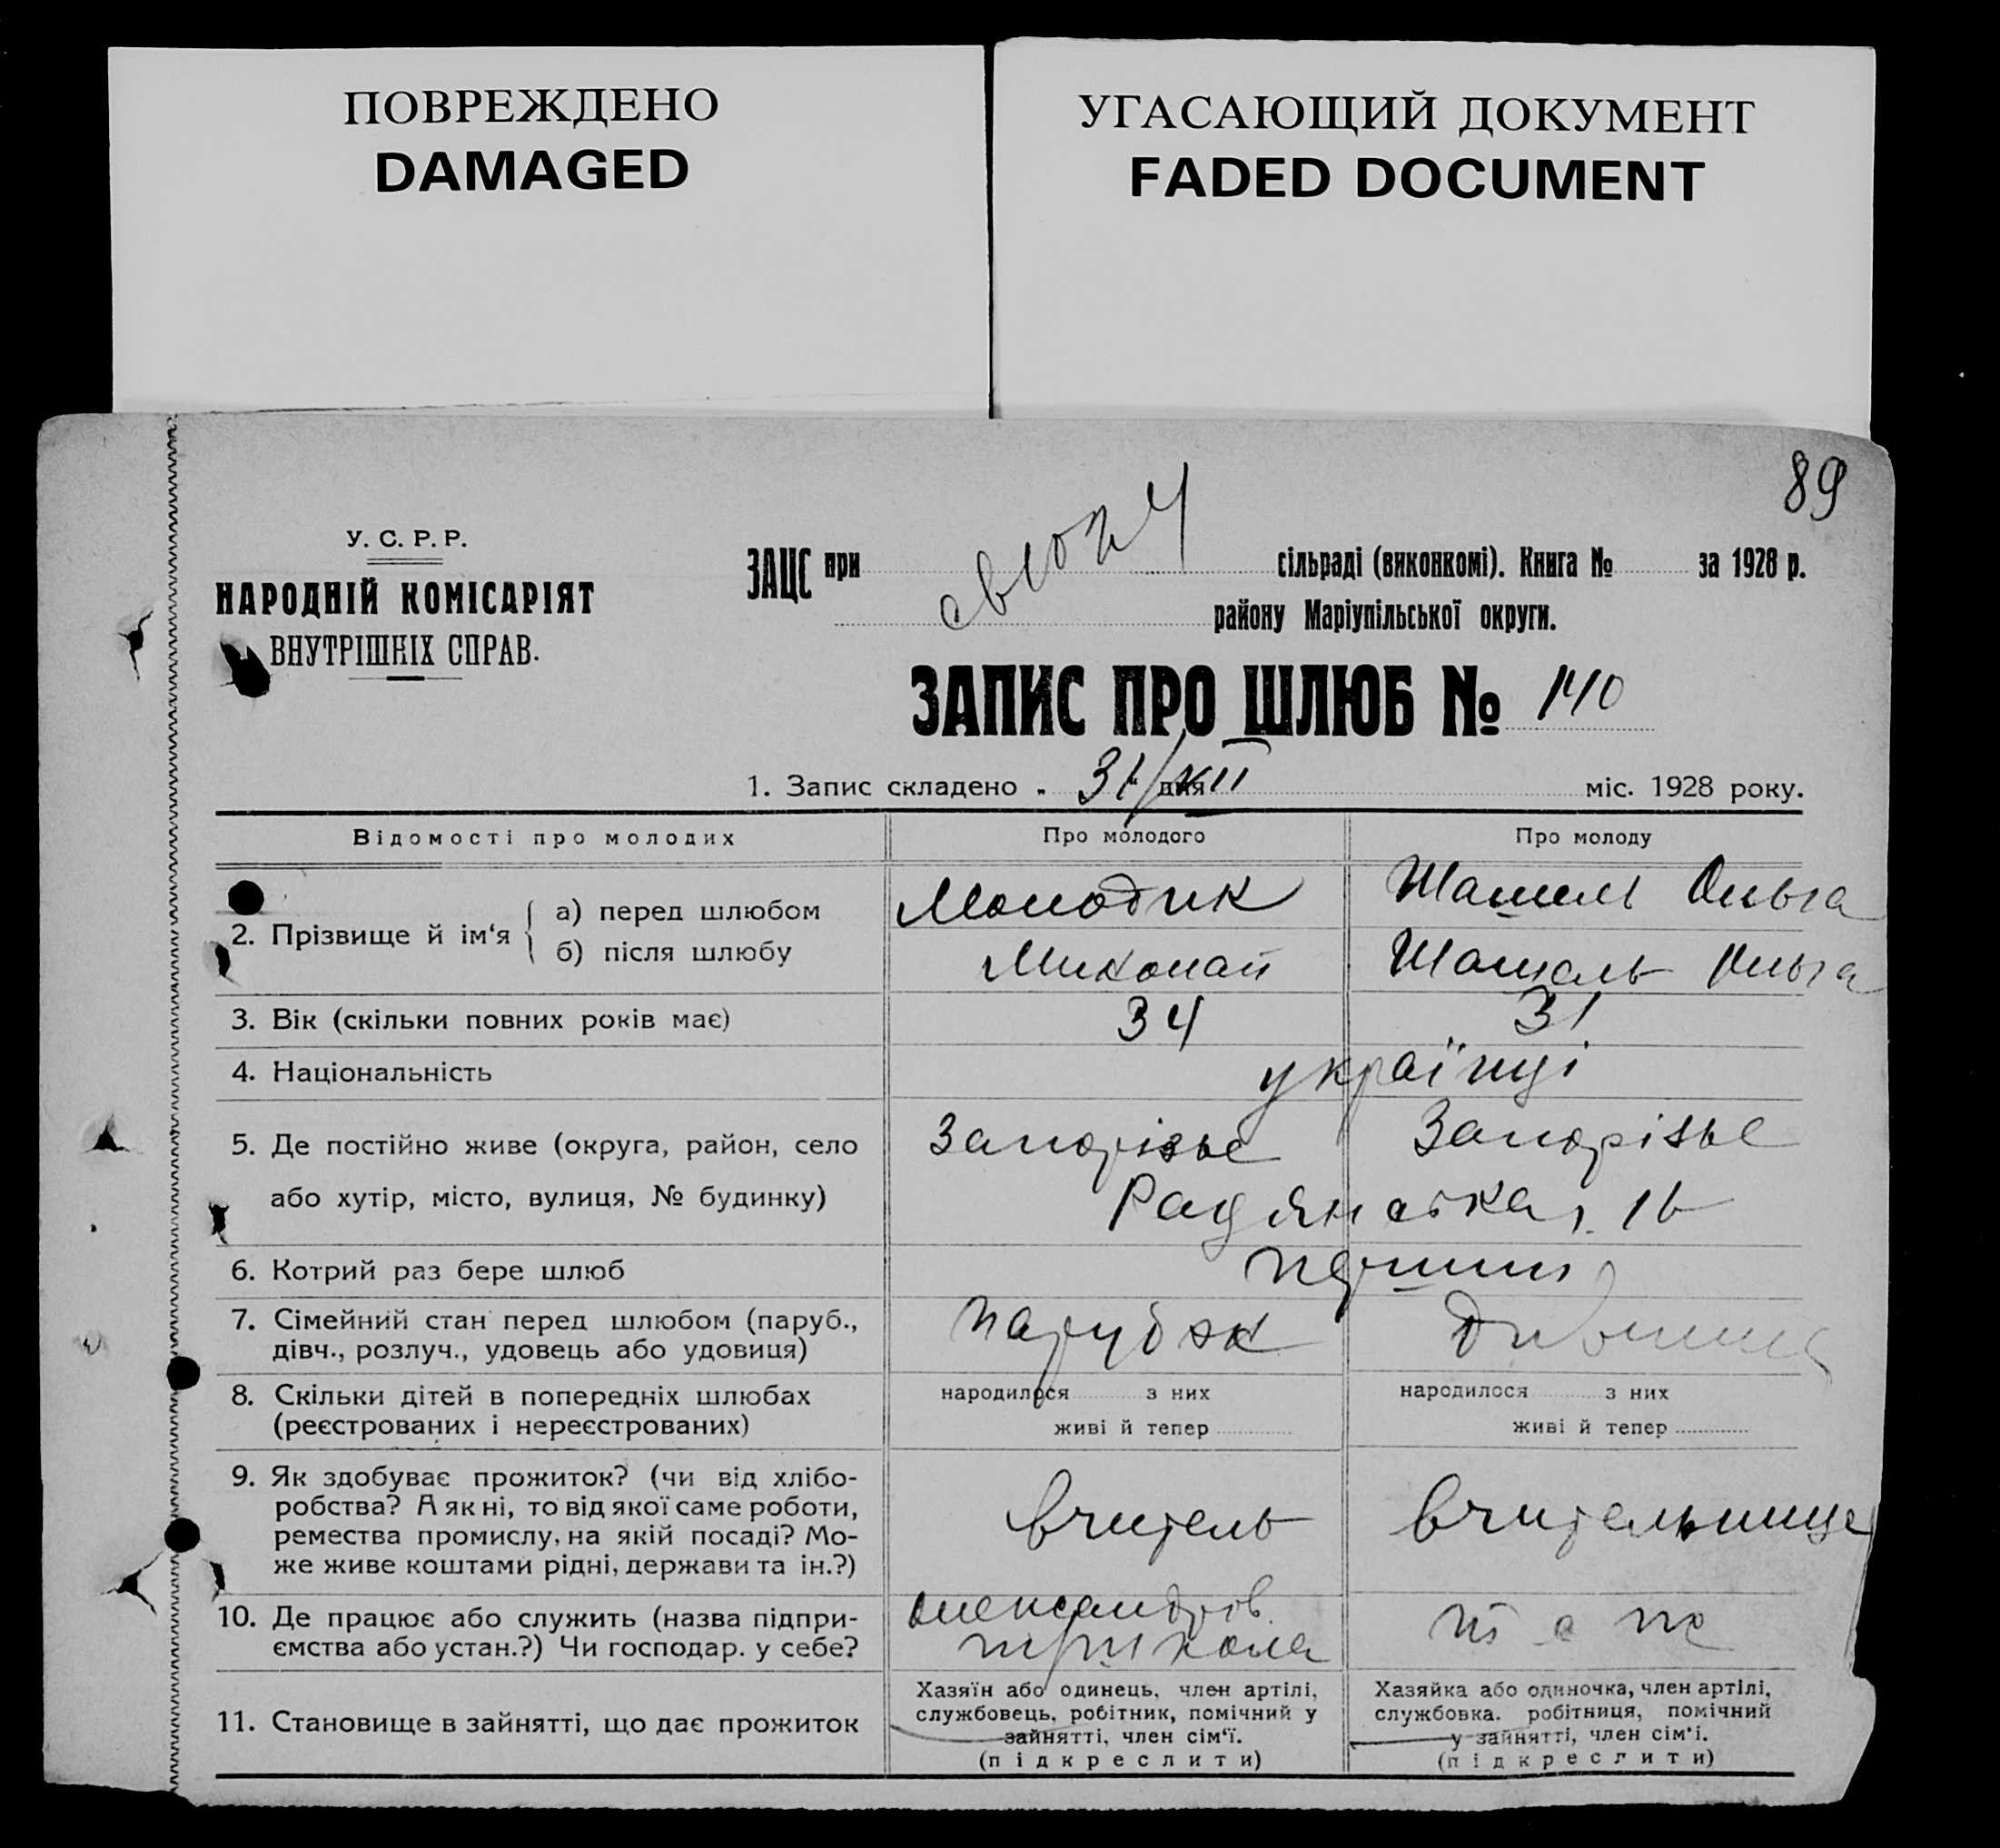 ПОВРЕЖДЕНО
DAMAGED
УГАСАЮЩИЙ ДОКУМЕНТ
FADED DOCUMENT
89
У. С. Р. Р.
НАРОДНІЙ КОМІСАРІЯТ
ВНУТРІШНІХ СПРАВ.
ЗАЦС при сільраді (виконкомі). Книга № за 1928 р.
району Маріупільської округи.
ЗАПИС ПРО ШЛЮБ № 140
1. Запис складено „ 31/XII " дня міс. 1928 року.
Відомості про молодих Про молодого Про молоду
2. Прізвище й ім‘я { а) перед шлюбом Молодик Ольга
б) після шлюбу Миколай Шашель Ольга
3. Вік (скільки повних років має) 34 31
4. Національність українці
5. Де постійно живе (округа, район, село Запоріжьє Запоріжьє
або хутір, місто, вулиця, № будинку) Радянська
6. Котрий раз бере шлюб перший
7. Сімейний стан перед шлюбом (паруб., парубок
дівч., розлуч., удовець або удовиця)
8. Скільки дітей в попередніх шлюбах народилося з них народилося з них
(реєстрованих і нереєстрованих) живі й тепер живі й тепер
9. Як здобуває прожиток? (чи від хлібо-
робства? А як ні, то від якої саме роботи, вчитель вчительниця
ремества промислу, на якій посаді? Мо-
же живе коштами рідні, держави та ін.?)
10. Де працює або служить (назва підпри- Олександров.
ємства або устан.?) Чи господар. у себе? школа
11. Становище в зайнятті, що дає прожиток
Хазяїн або одинець, член артілі,
службовець, робітник, помічний у
зайнятті, член сім‘ї.
(підкреслити)
Хазяйка або одиночка, член артілі,
службовка. робітниця, помічний
у зайнятті, член сім‘ї.
(підкреслити)